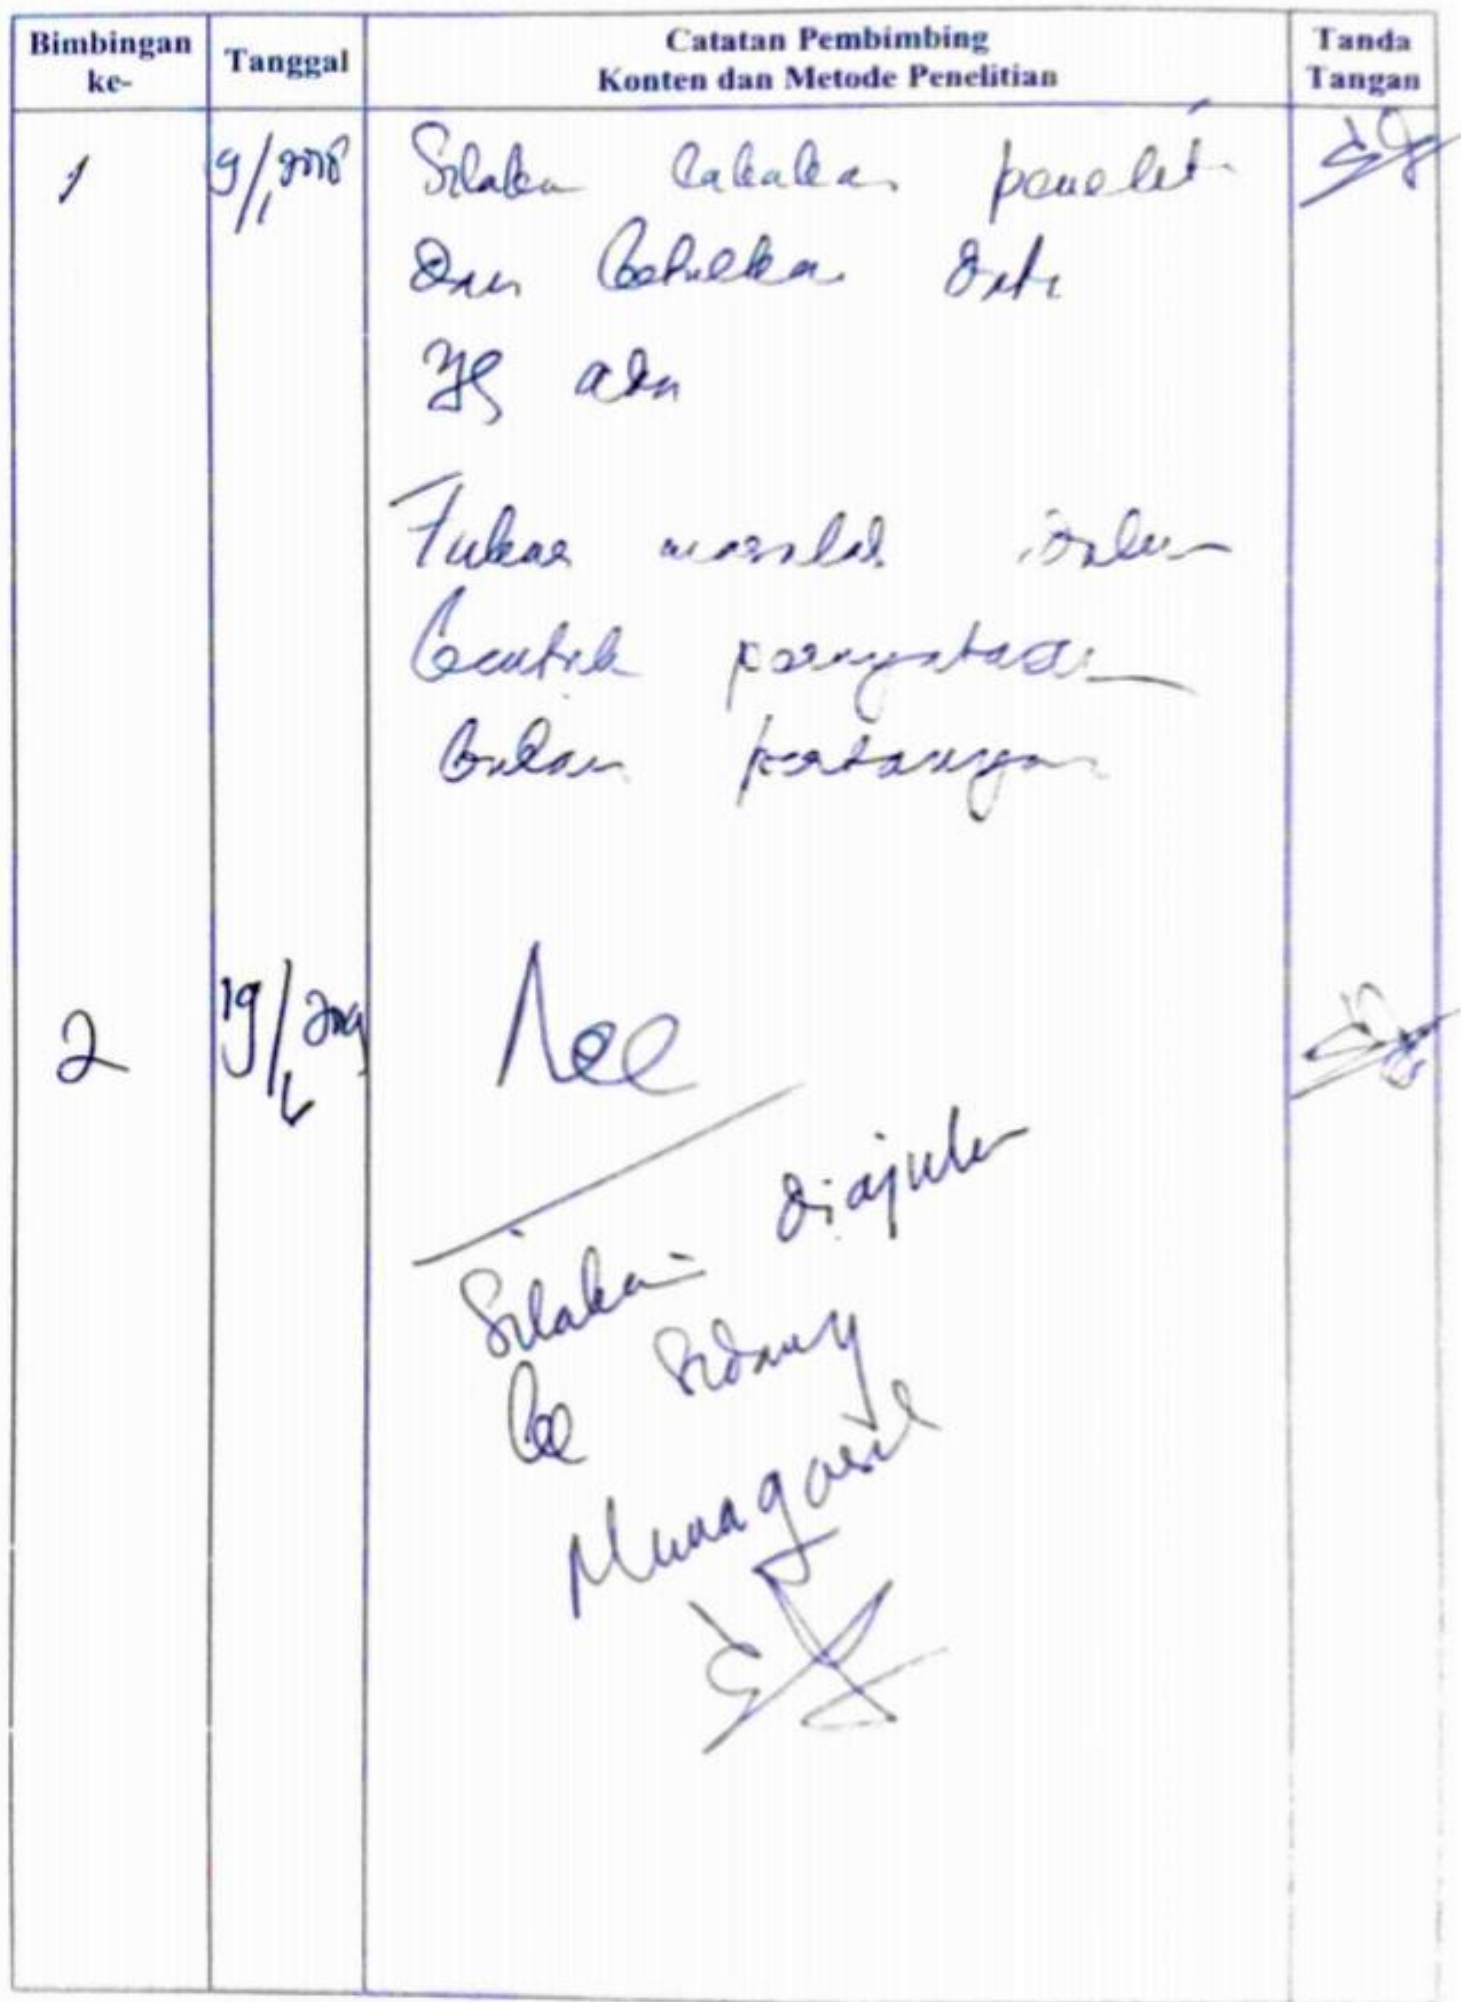 Bimbingan ke-
Tanggal
Catatan Pembimbing
Konten dan Metode Penelitian
Tanda Tangan
1
9/1 2018
Silakan lakukan penelit
dan
data
yg ada
masalah dalam
bentuk pernyataan
bukan pertanyaan
2
19/
Acc
Silakan diajukan
ke sidang
Munaqasah